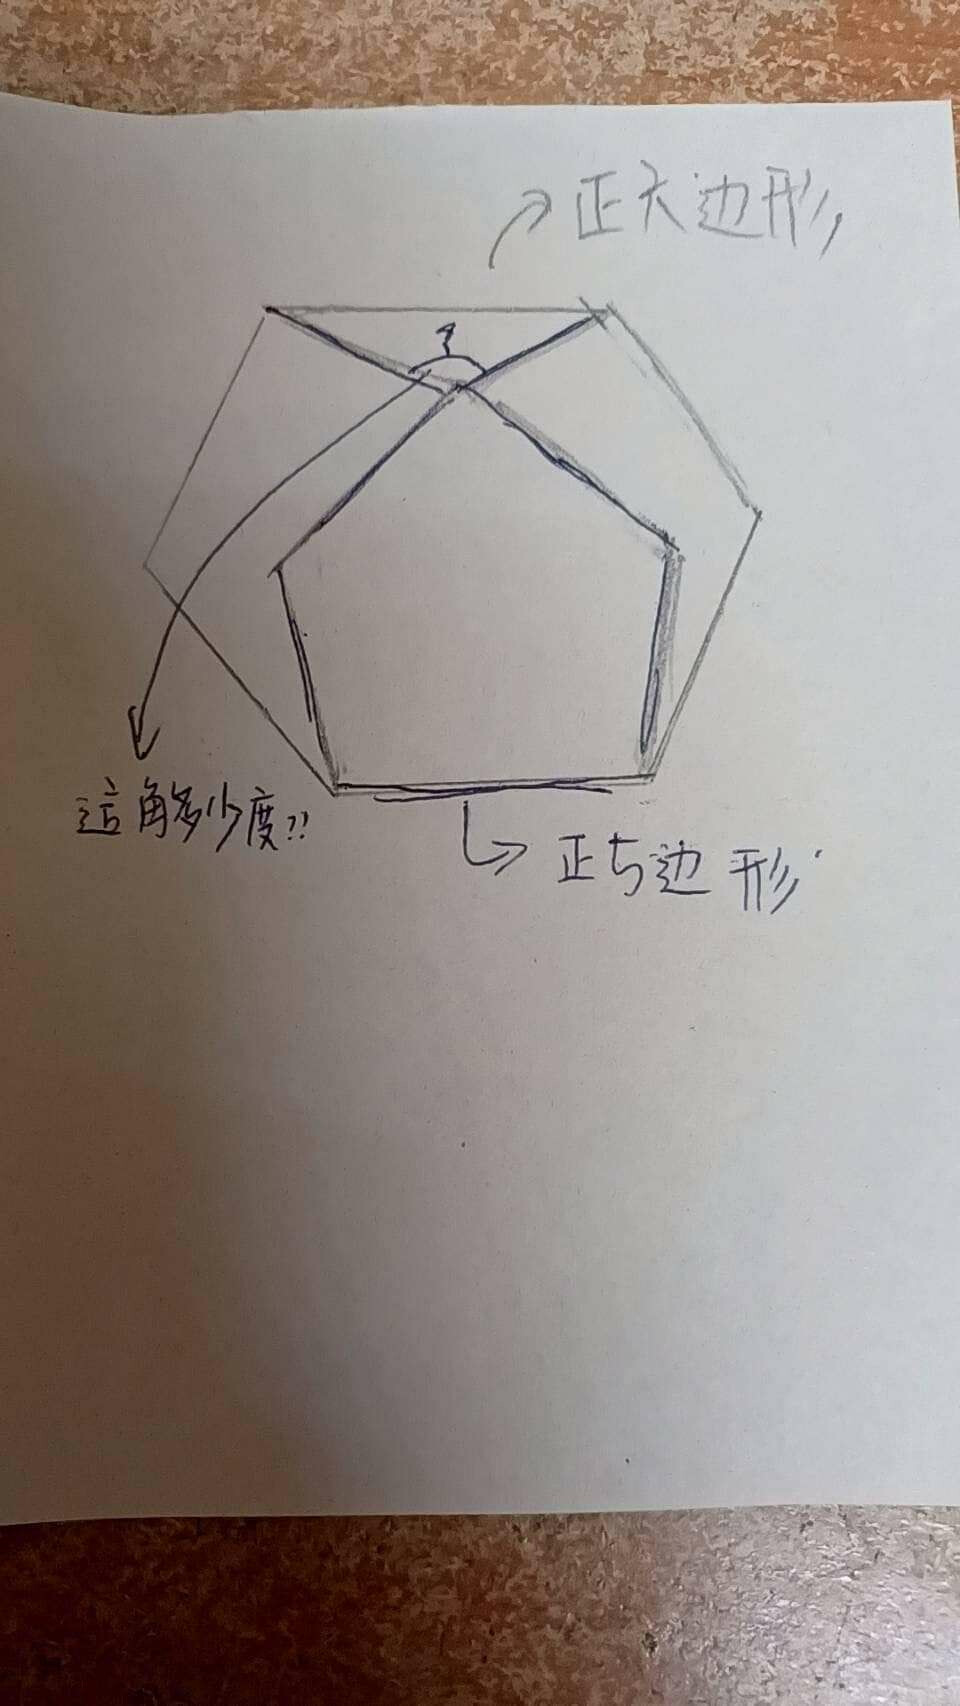 正六边形,
?
這角多少度??
正五边形